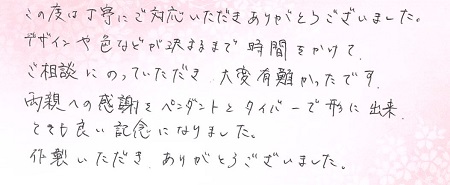 この度は丁寧にご対応いただきありがとうございました。
デザインや色などが決まるまで時間をかけて
ご相談にのっていただき、大変有難かったです。
両親への感謝をペンダントとタイバーで形に出来、
とても良い記念になりました。
作製いただき、ありがとうございました。